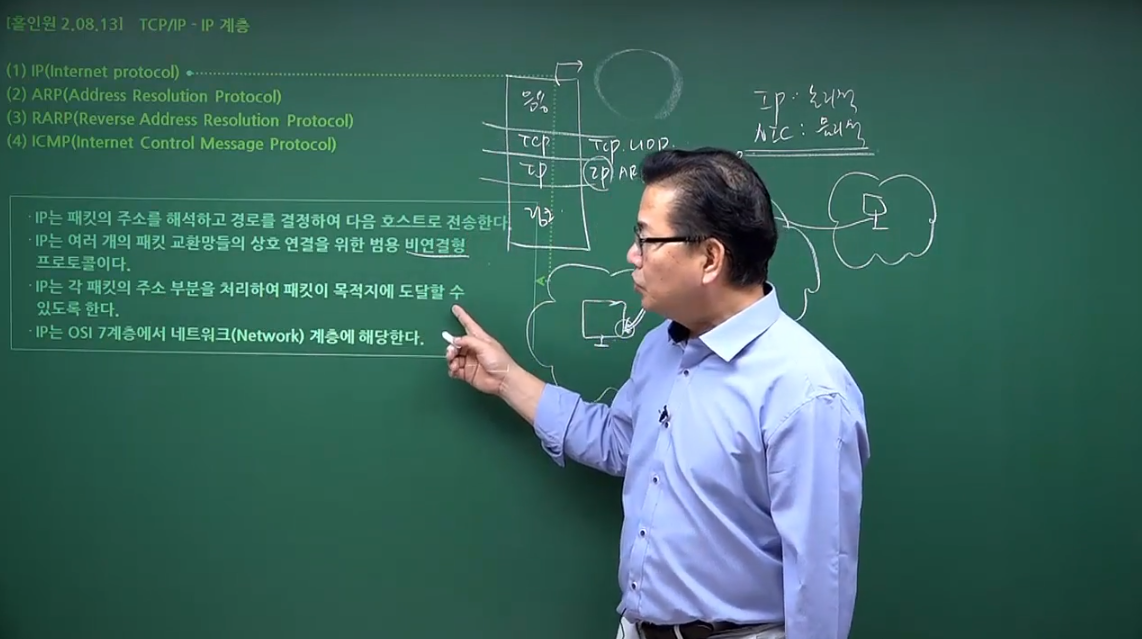 [홀인원 2.08.13] TCP/IP - IP 계층
(1) IP(Internet protocol)
(2) ARP(Address Resolution Protocol)
(3) RARP(Reverse Address Resolution Protocol)
(4) ICMP(Internet Control Message Protocol)
· IP는 패킷의 주소를 해석하고 경로를 결정하여 다음 호스트로 전송한다.
· IP는 여러 개의 패킷 교환망들의 상호 연결을 위한 범용 비연결형
프로토콜이다.
· IP는 각 패킷의 주소 부분을 처리하여 패킷이 목적지에 도달할 수
있도록 한다.
· IP는 OSI 7계층에서 네트워크(Network) 계층에 해당한다.
응용
TCP TCP. UDP.
IP IP AR
IP : 논리적
NIC : 물리적